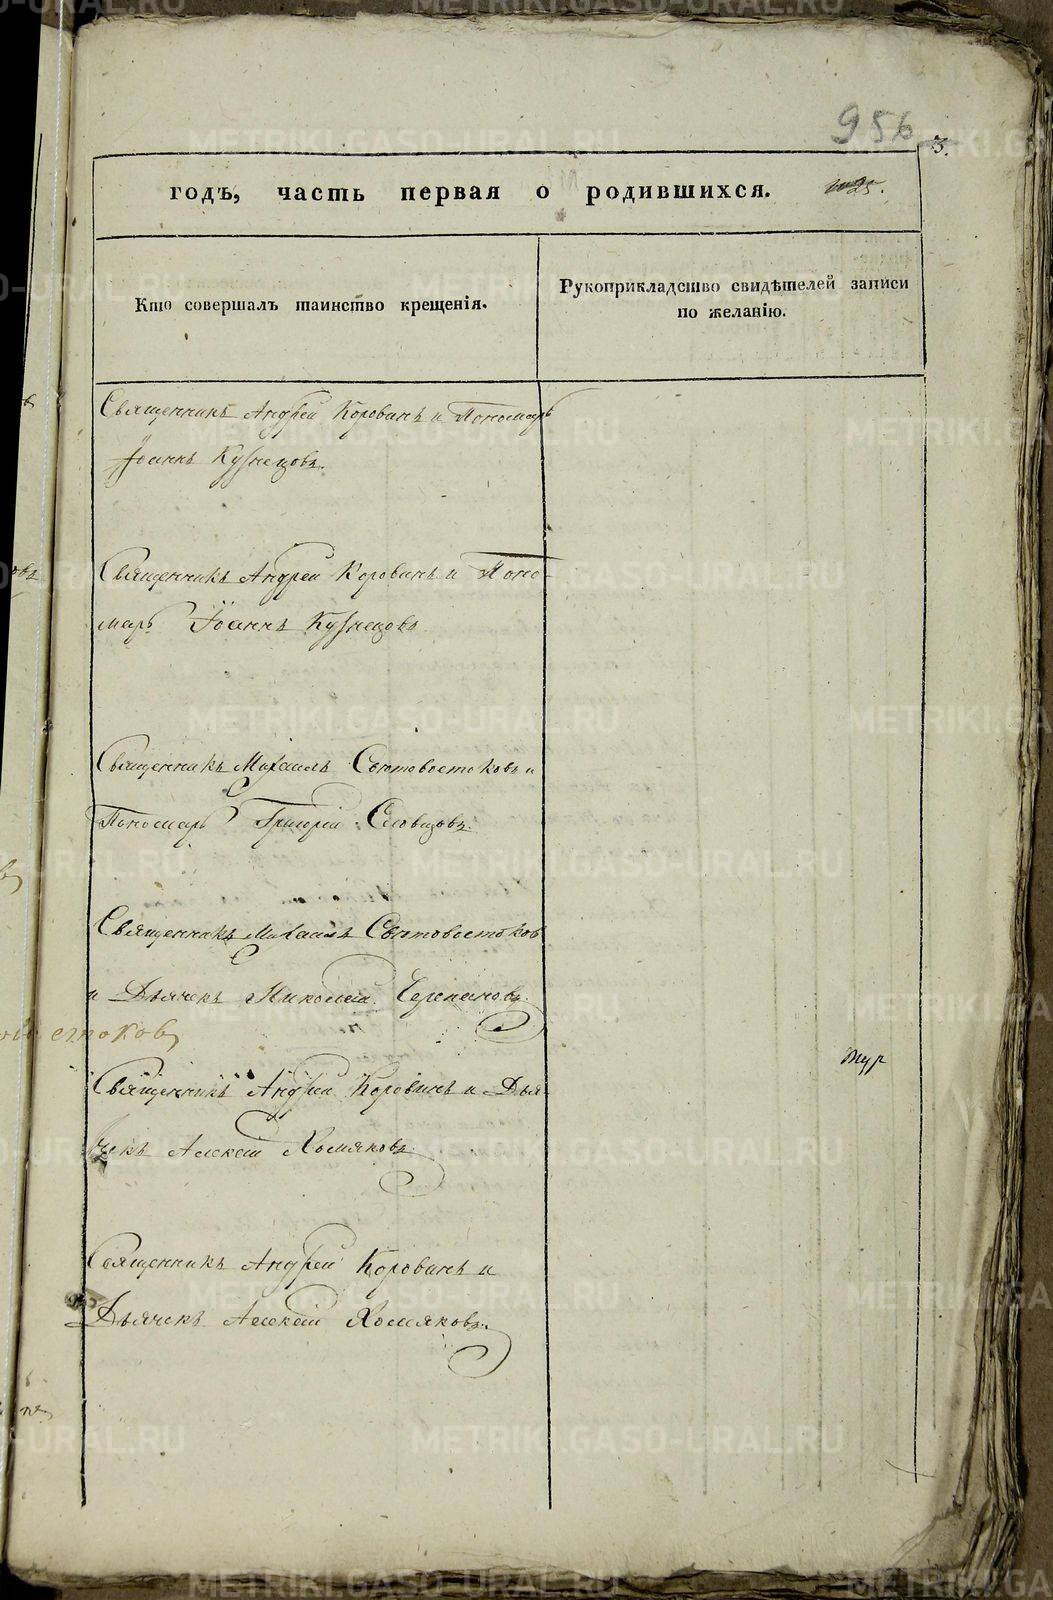 956
3.
годъ, часть первая о родившихся.
Кто совершалъ таинство крещенія.
Рукоприкладство свидѣтелей записи
по желанію.
Священникъ Андрей Коровинъ и Пономарь
Іоаннъ Кузнецовъ.
Священникъ Андрей Коровинъ и Поно-
марь Іоаннъ Кузнецовъ
Священникъ Михаилъ Свѣтовостоковъ и
Пономарь Григорій Словцовъ.
Священникъ Михаилъ Свѣтовостоков
и Дьячекъ Николай Черепановъ.
Священникъ Андрей Коровинъ и Дья-
чекъ Алексій Хомяковъ.
Священникъ Андрей Коровинъ и
Дьячекъ Алексій Хомяковъ.
METRIKI.GASO-URAL.RU